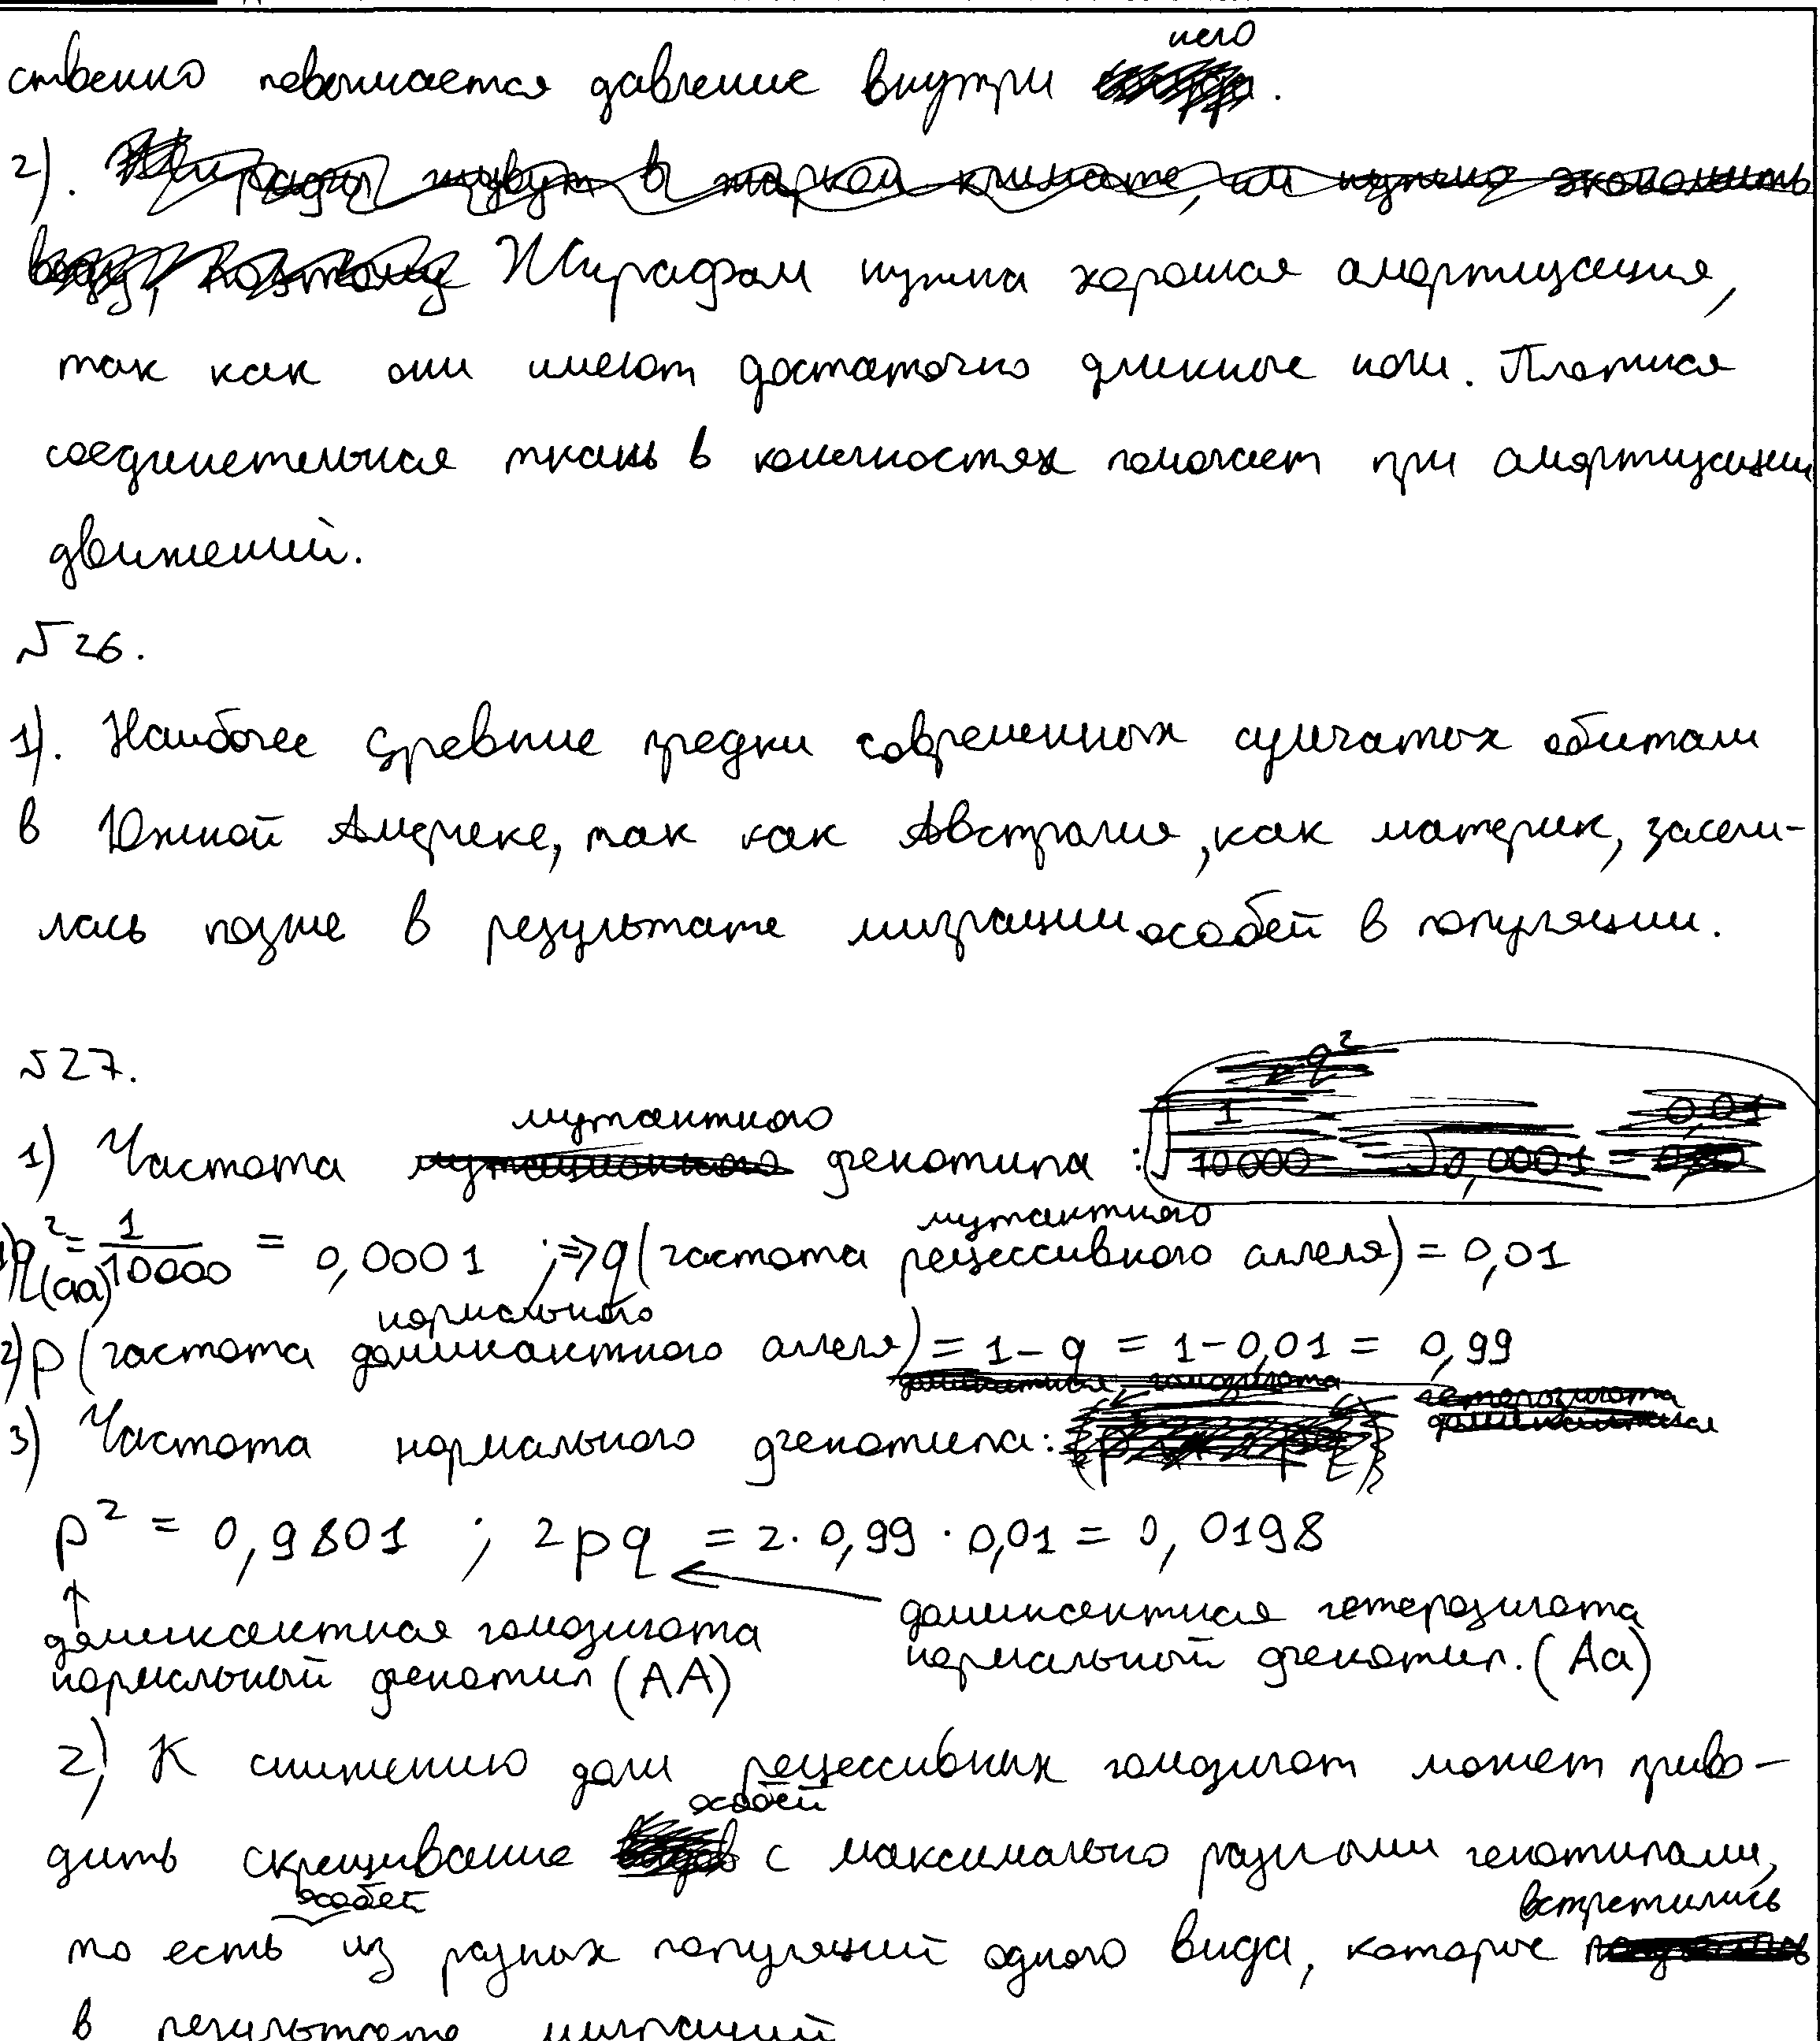 ственно повышается давление внутри него.
2). Жирафы живут в жарком климате, им нужно экономить
воду, поэтому Жирафам нужна хорошая амортизация,
так как они имеют достаточно длинные ноги. Плотная
соединетельная ткань в конечностях помогает при амортизации
движений.
№26.
1). Наиболее древние предки современных сумчатых обитали
в Южной Америке, так как Австралия, как материк, засели-
лась позже в результате миграции особей в популяции.
№27.
1) Частота мутантного фенотипа :
1) q²(aa) = 1/10000 = 0,0001 ; => q (частота мутантного рецессивного аллеля) = 0,01
2) p (частота нормального доминантного аллеля) = 1-q = 1-0,01 = 0,99
3) Частота нормального фенотипа:
p² = 0,9801 ; 2pq = 2·0,99·0,01 = 0,0198
доминантная гомозигота
нормальный фенотип (AA)
доминантная гетерозигота
нормальный фенотип. (Aa)
2) К снижению доли рецессивных гомозигот может приво-
дить скрещивание особей с максимально разными генотипами,
то есть особей из разных популяций одного вида, которые встретились
в результате миграций